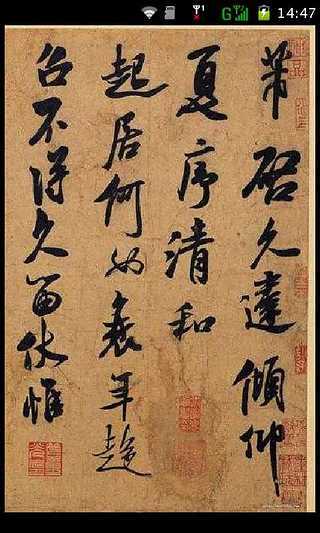 14:47
芾啓久違傾仰
夏序清和
起居何如衰年趨
召不得久留伏惟